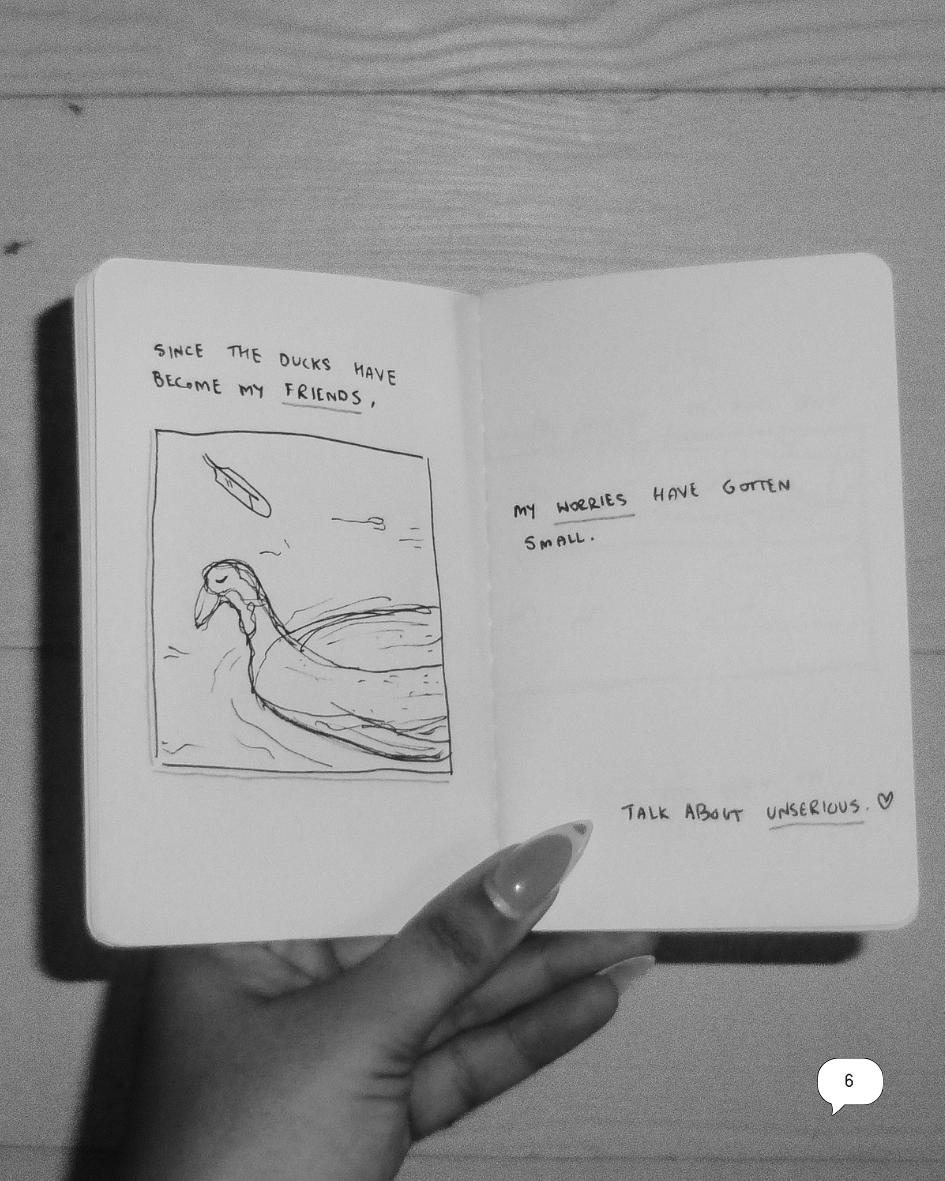 SINCE THE DUCKS HAVE
BECOME MY FRIENDS,
MY WORRIES HAVE GOTTEN
SMALL.
TALK ABOUT UNSERIOUS. ♡
6